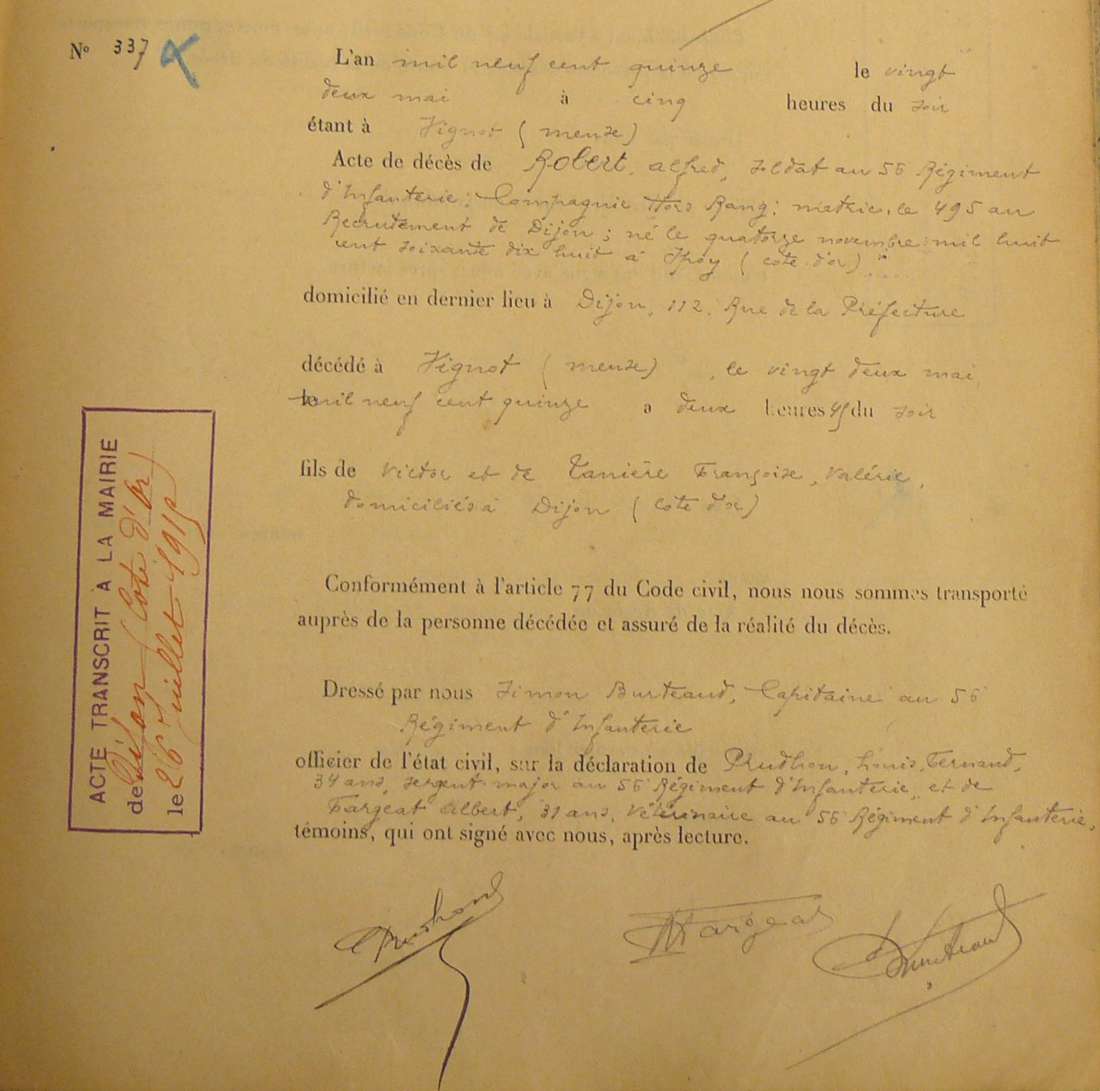 N° 337
L'an mil neuf cent quinze le vingt
deux mai à cinq heures du soir
étant à Vignot (meuse)
Acte de décès de Robert, alfred, soldat au 56 Régiment
d'Infanterie; Compagnie Hors Rang; matric. le 495 au
Recrutement de Dijon; né le quatorze novembre mil huit
cent soixante dix huit à (cote d'or)
domicilié en dernier lieu à Dijon, 112, Rue de la Préfecture
décédé à Vignot (meuse), le vingt deux mai
mil neuf cent quinze a deux heures 45 du soir
fils de Victor et de Tanière Françoise, Valérie,
domiciliés à Dijon (cote d'or)
Conformément à l'article 77 du Code civil, nous nous sommes transporté
auprès de la personne décédée et assuré de la réalité du décès.
Dressé par nous Simon Burteaud, Capitaine au 56
Régiment d'Infanterie
officier de l'état civil, sur la déclaration de Prudhon, Louis, Fernand,
34 ans, sergent major au 56 Régiment d'Infanterie, et de
Fargeat Albert, 31 ans, Vétérinaire au 56 Régiment d'Infanterie,
témoins, qui ont signé avec nous, après lecture.
Prudhon Fargeat Burteaud
ACTE TRANSCRIT À LA MAIRIE
de Dijon (Côte d'Or)
le 26 Juillet 1915